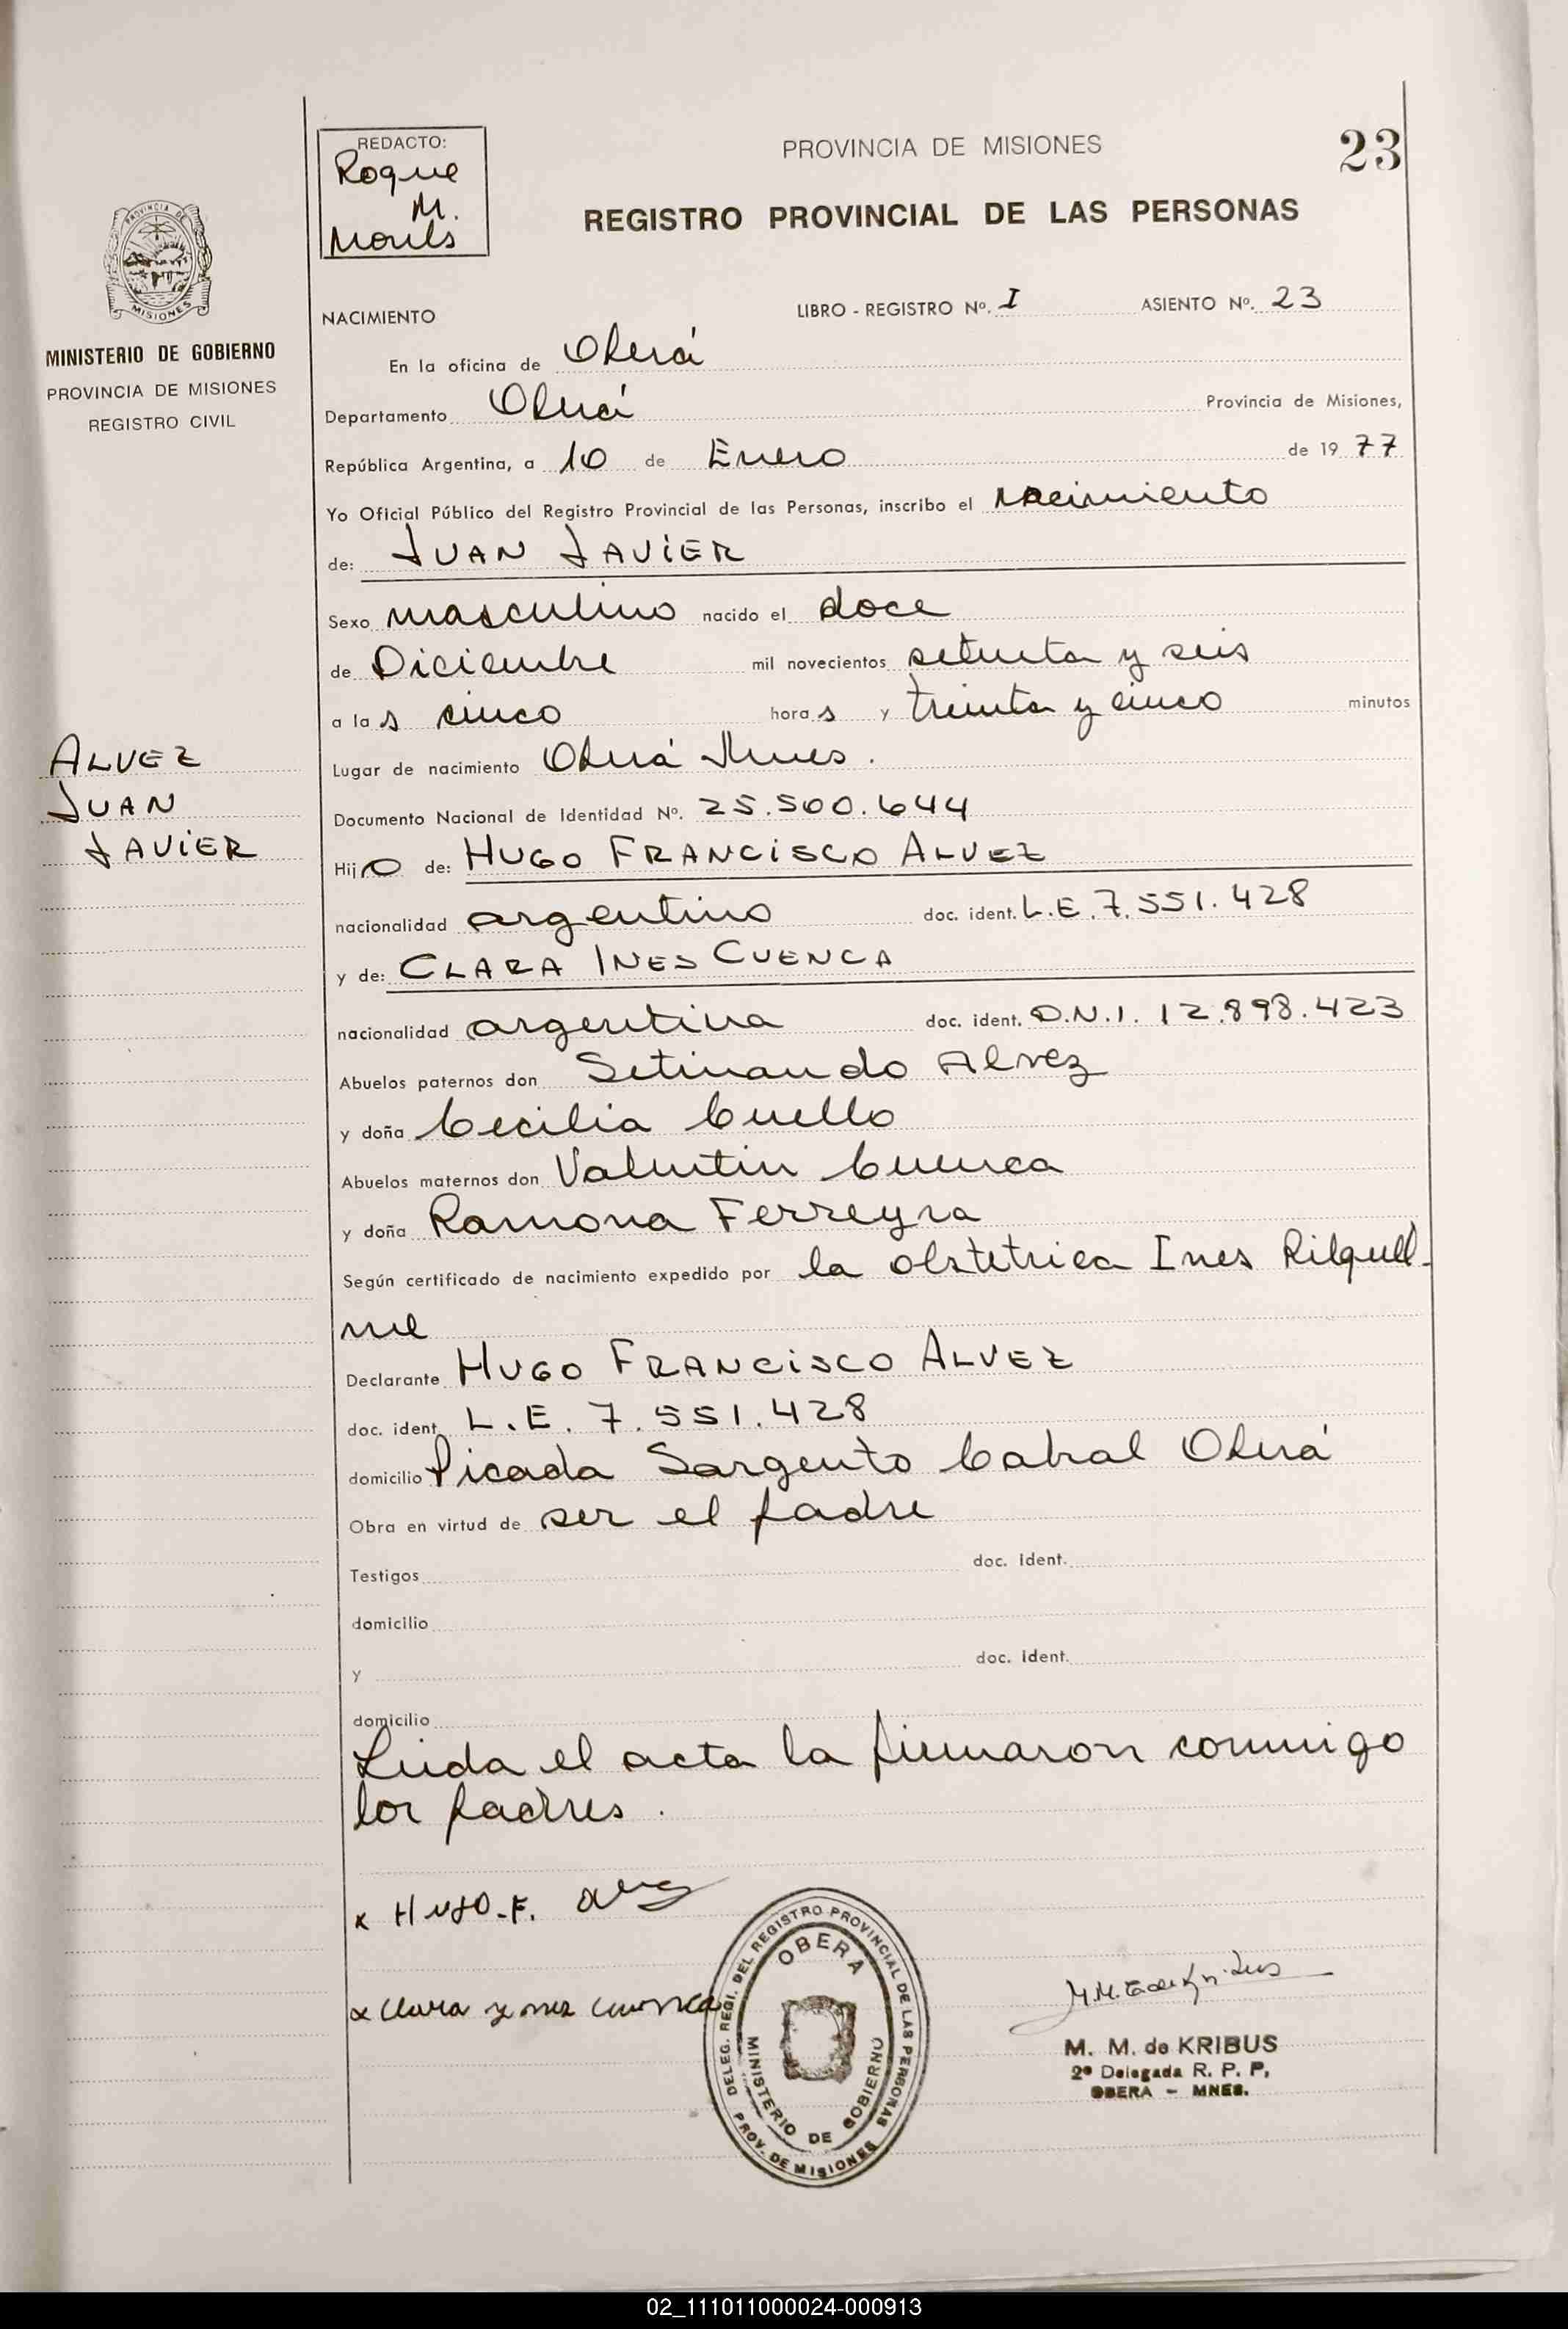 REDACTO:
Roque
M.
PROVINCIA DE MISIONES
23
REGISTRO PROVINCIAL DE LAS PERSONAS
PROVINCIA DE
MISIONES
MINISTERIO DE GOBIERNO
PROVINCIA DE MISIONES
REGISTRO CIVIL
NACIMIENTO LIBRO - REGISTRO Nº. I ASIENTO Nº. 23
En la oficina de Oberá
Departamento Oberá Provincia de Misiones,
República Argentina, a 10 de Enero de 19 77
Yo Oficial Público del Registro Provincial de las Personas, inscribo el nacimiento
de: JUAN JAVIER
Sexo masculino nacido el doce
de Diciembre mil novecientos setenta y seis
a las cinco horas y treinta y cinco minutos
ALVEZ
JUAN
JAVIER
Lugar de nacimiento Oberá Mnes.
Documento Nacional de Identidad Nº. 25.500.644
Hijo de: HUGO FRANCISCO ALVEZ
nacionalidad argentino doc. ident. L.E. 7.551.428
y de: CLARA INES CUENCA
nacionalidad argentina doc. ident. D.N.I. 12.898.423
Abuelos paternos don Setinando Alvez
y doña Cecilia Cuello
Abuelos maternos don Valentin Cuenca
y doña Ramona Ferreyra
Según certificado de nacimiento expedido por la obstetrica Ines
Declarante HUGO FRANCISCO ALVEZ
doc. ident. L.E. 7.551.428
domicilio Picada Sargento Cabral Oberá
Obra en virtud de ser el padre
Testigos doc. ident.
domicilio
y doc. ident.
domicilio
Leida el acta la firmaron conmigo
los padres.
x Hugo.F.
x Clara Ynez Cuenca
DELEG. REGI. DEL REGISTRO PROVINCIAL DE LAS PERSONAS
OBERA
MINISTERIO DE GOBIERNO
PROV. DE MISIONES
M. M. de KRIBUS
2ª Delegada R. P. P.
OBERA - MNES.
02_111011000024-000913